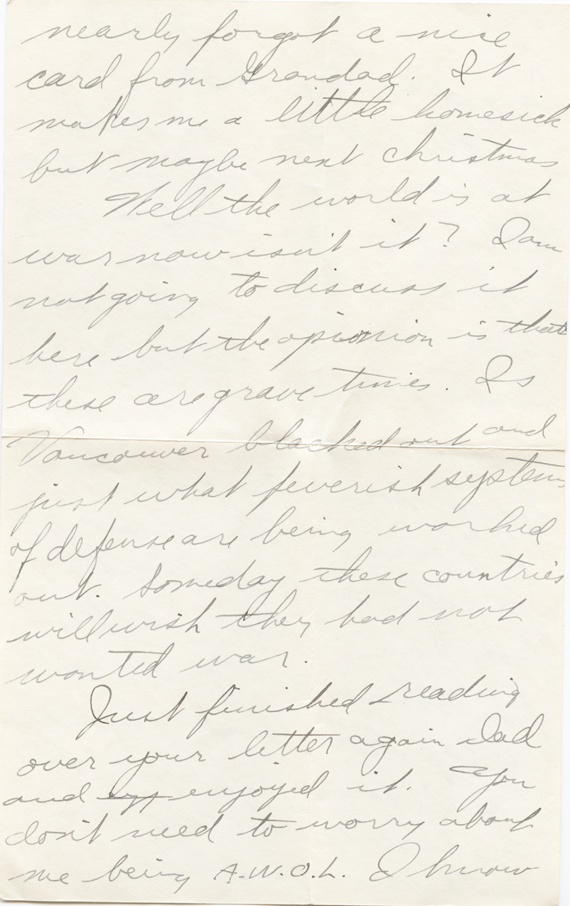 nearly forgot a nice
card from Grandad. It
makes me a little homesick
but maybe next christmas
Well the world is at
war now isn't it? I am
not going to discuss it
here but the opionion is that
these are grave times. Is
Vancouver blacked out and
just what feverish systems
of defense are being worked
out. Someday these countries
will wish they had not
wanted war.
Just finished reading
over your letter again Dad
and enjoyed it. You
don't need to worry about
me being A.W.O.L. I know